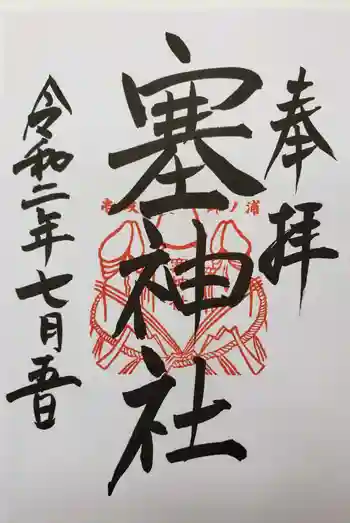 奉拝
塞神社
令和二年七月五日